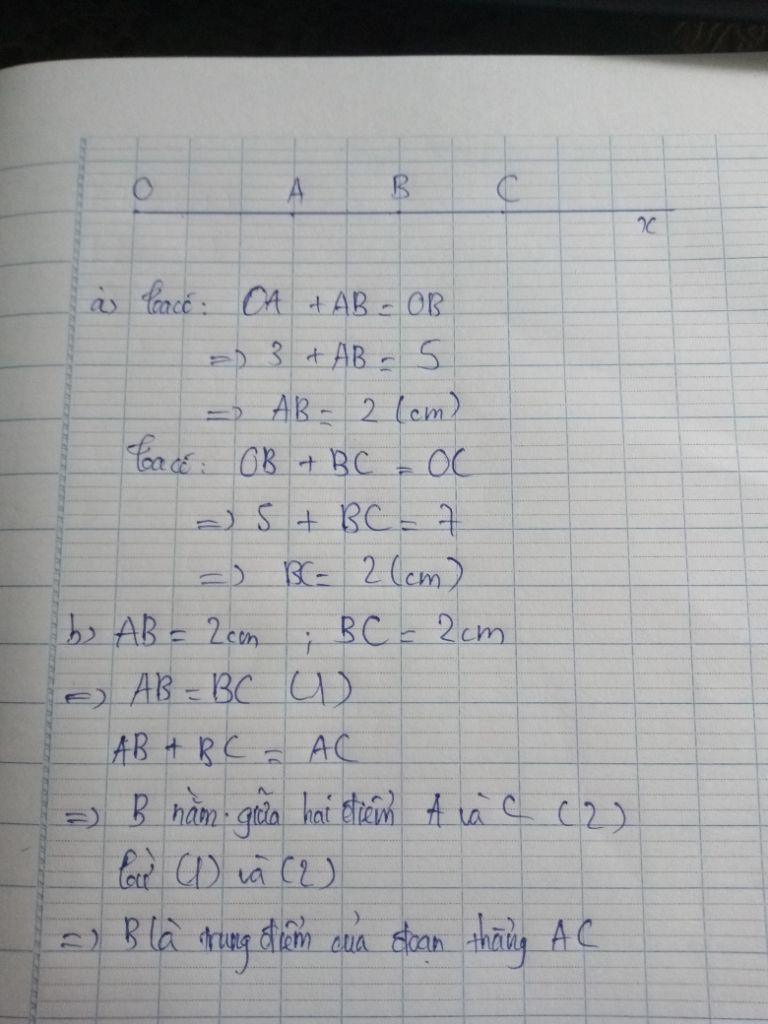 O A B C
x
a) Ta có: OA + AB = OB
=> 3 + AB = 5
=> AB = 2 (cm)
Ta có: OB + BC = OC
=> 5 + BC = 7
=> BC = 2 (cm)
b) AB = 2cm ; BC = 2cm
=> AB = BC (1)
AB + BC = AC
=> B nằm giữa hai điểm A và C (2)
Từ (1) và (2)
=> B là trung điểm của đoạn thẳng AC